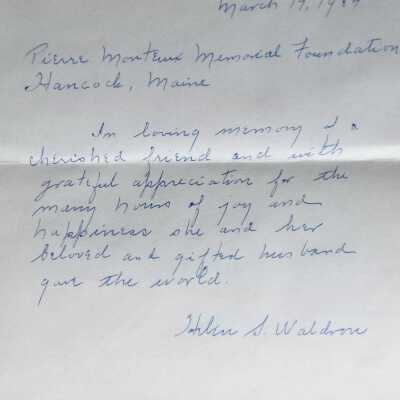 March 19, 1984
Pierre Monteux Memorial Foundation
Hancock, Maine
In loving memory of a
cherished friend and with
grateful appreciation for the
many hours of joy and
happiness she and her
beloved and gifted husband
gave the world.
Helen S. Waldron